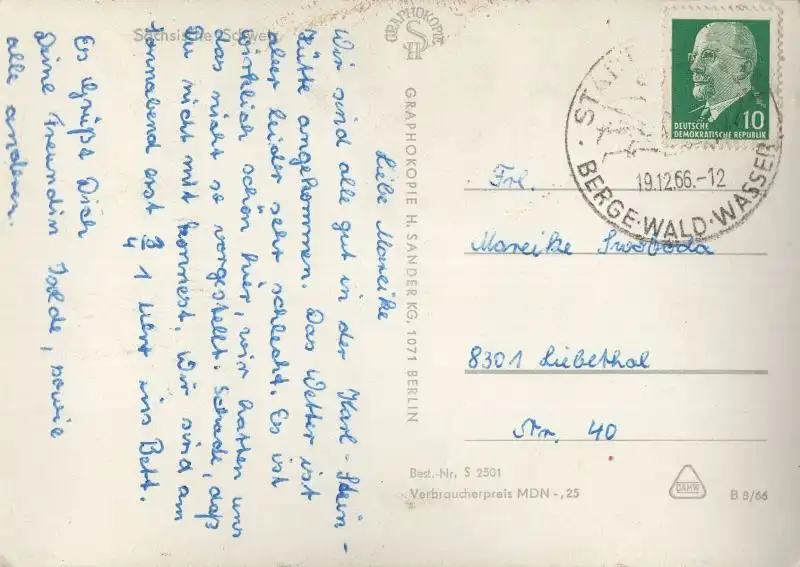 Sächsische Schweiz
Liebe Mareike
Wir sind alle gut in der Karl-Stein-
hütte angekommen. Das Wetter ist
aber leider sehr schlecht. Es ist
wirklich schön hier, wir hatten uns
das nicht so vorgestellt. Schade, daß
Du nicht mit konntest. Wir sind am
Sonnabend erst 3/4 1 Uhr ins Bett.
Es grüßt Dich
Deine Freundin Isolde, sowie
alle anderen.
GRAPHOKOPIE
SH
GRAPHOKOPIE H. SANDER KG, 1071 BERLIN
10
DEUTSCHE
DEMOKRATISCHE REPUBLIK
STADT
19.12.66.-12
BERGE·WALD·WASSER
Frl.
Mareike Swoboda
8301 Liebethal
Nr. 40
Best.-Nr. S 2501
Verbraucherpreis MDN -,25
DAMW
B 8/66